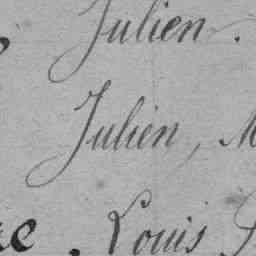 Julien.
Julien, M
re. Louis